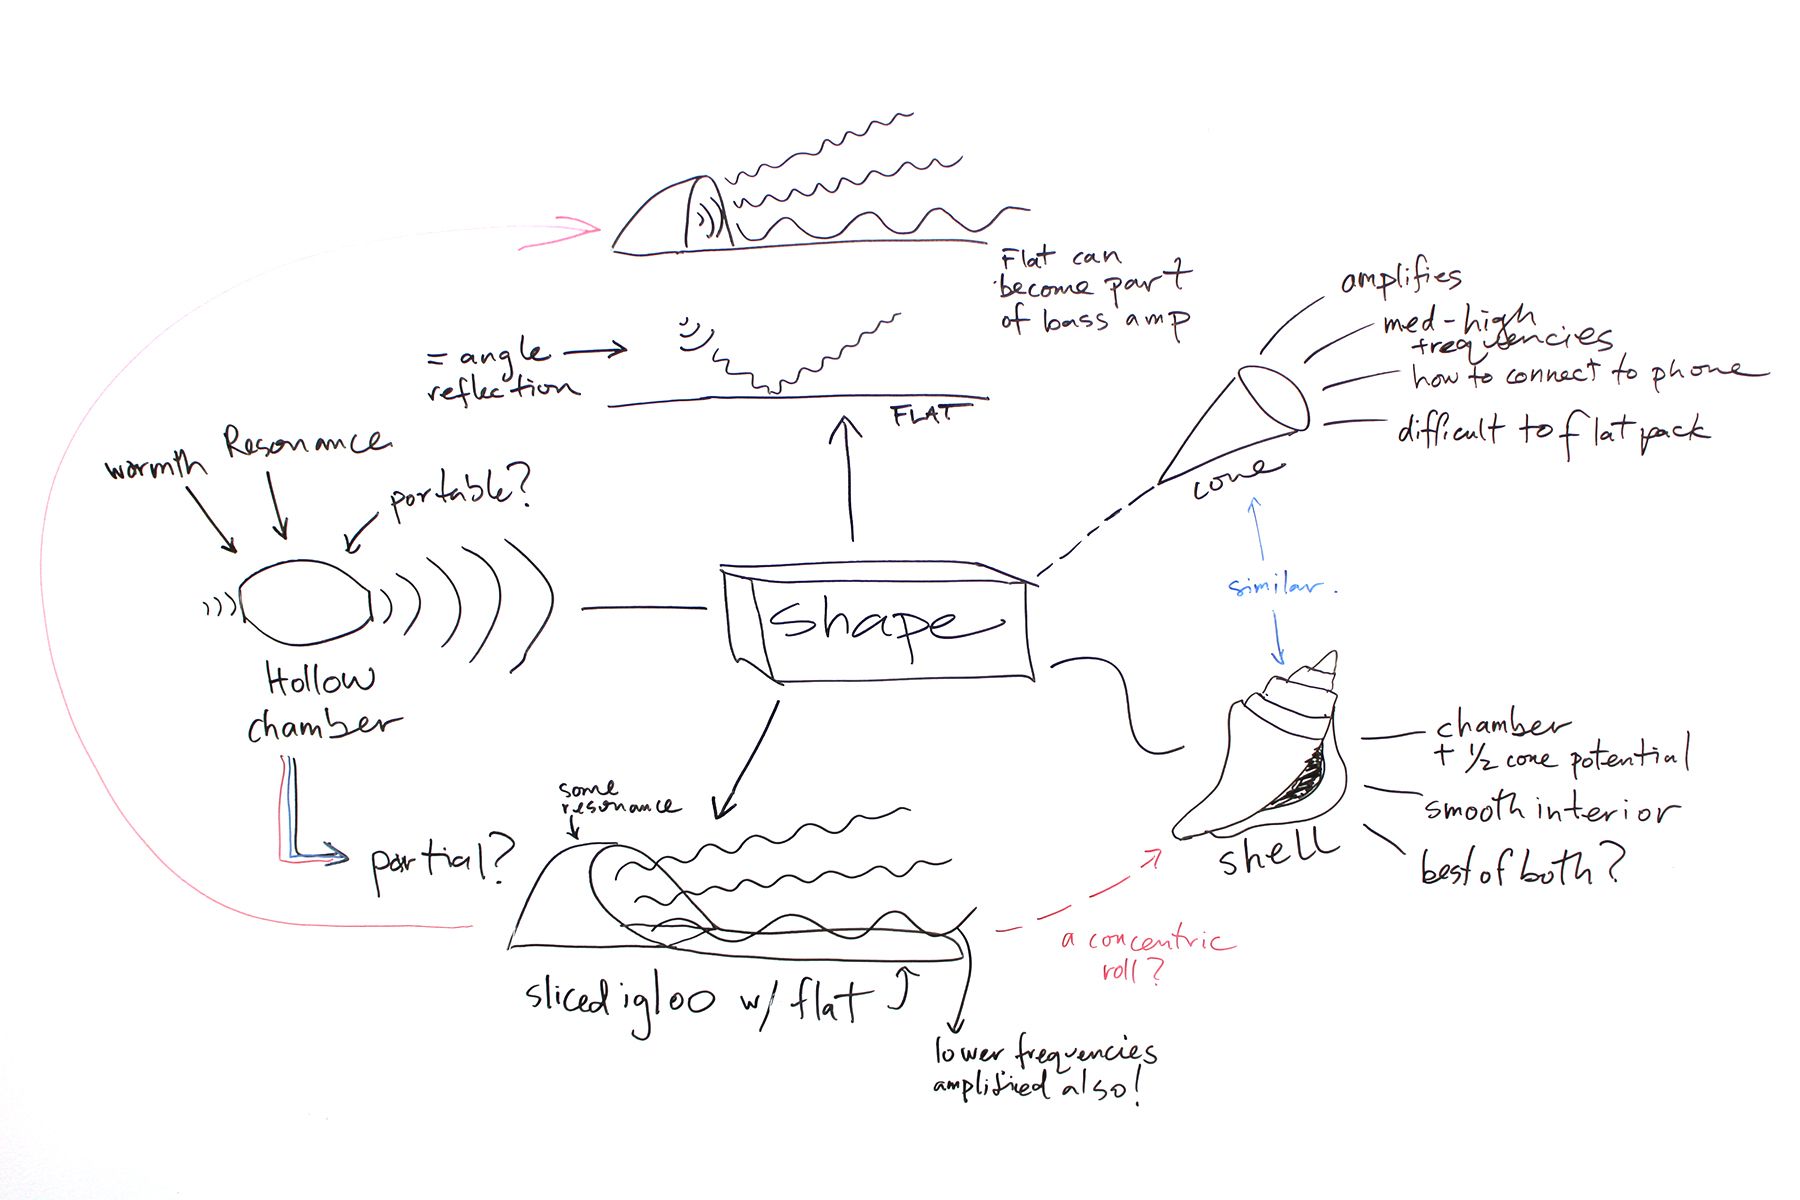 Flat can
become part
of bass amp
= angle
reflection
FLAT
amplifies
med-high
frequencies
how to connect to phone
difficult to flat pack
cone
warmth
Resonance
portable?
Hollow
chamber
shape
similar.
partial?
some
resonance
sliced igloo w/ flat
lower frequencies
amplified also!
a concentric
roll?
shell
chamber
+ 1/2 cone potential
smooth interior
best of both?